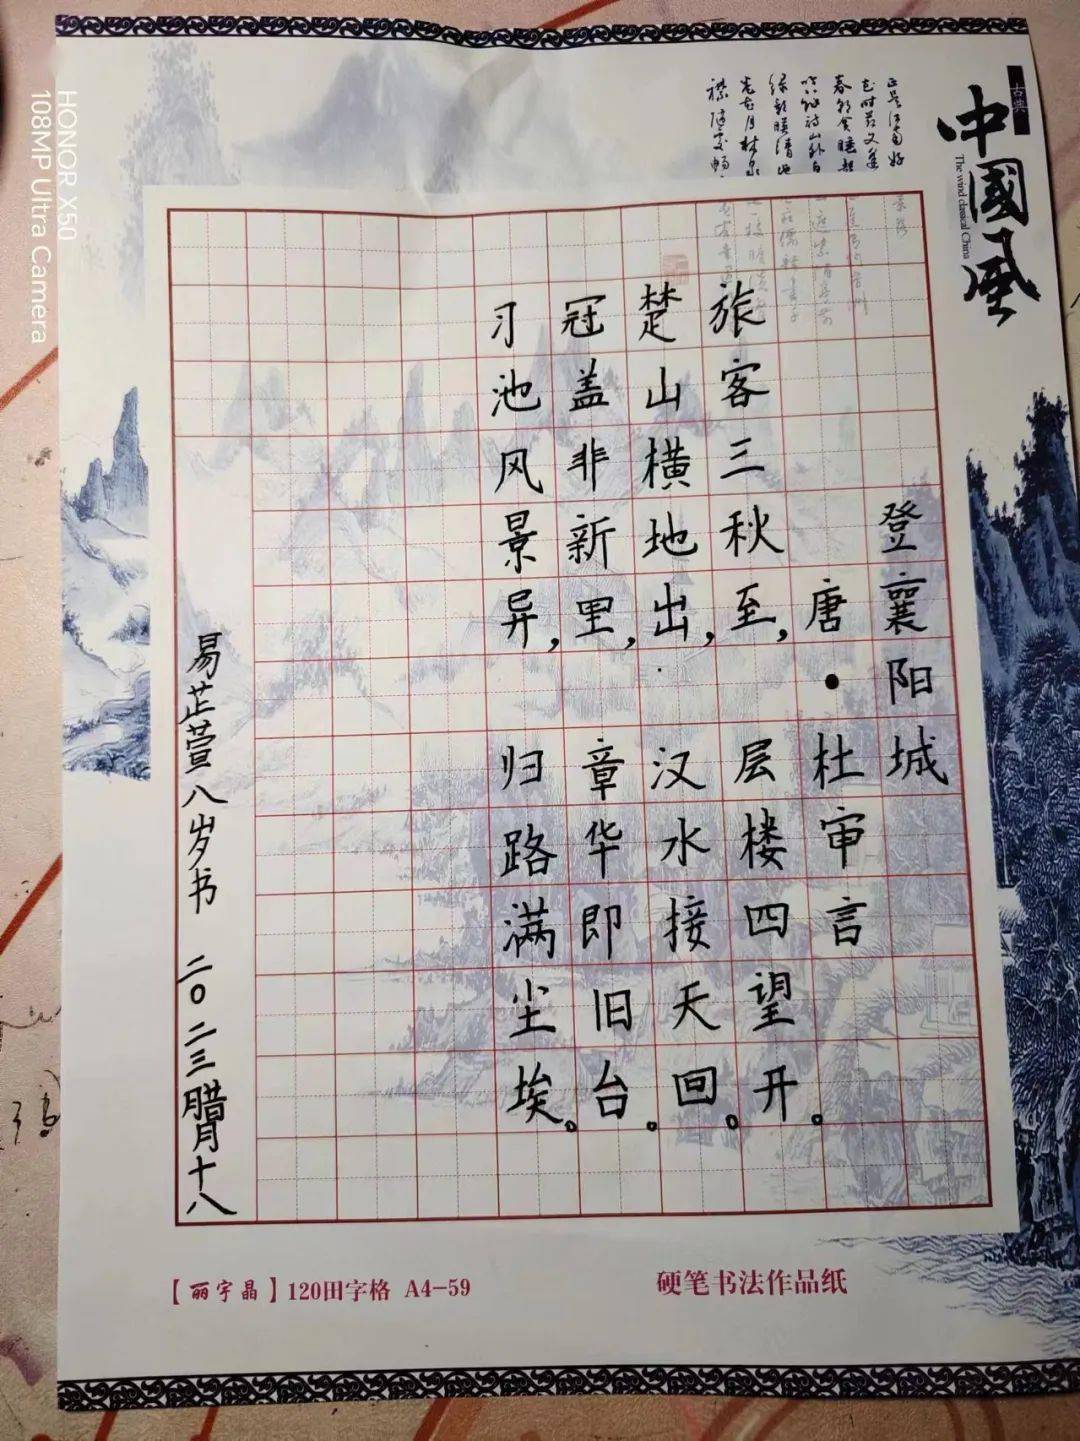 HONOR X50
108MP Ultra Camera
古典
中國風
The wind classical China
登襄阳城
唐·杜审言
旅客三秋至,层楼四望开。
楚山横地出,汉水接天回。
冠盖非新里,章华即旧台。
习池风景异,归路满尘埃。
易芷萱八岁书 二〇二三腊月十八
【丽字晶】120田字格 A4-59
硬笔书法作品纸